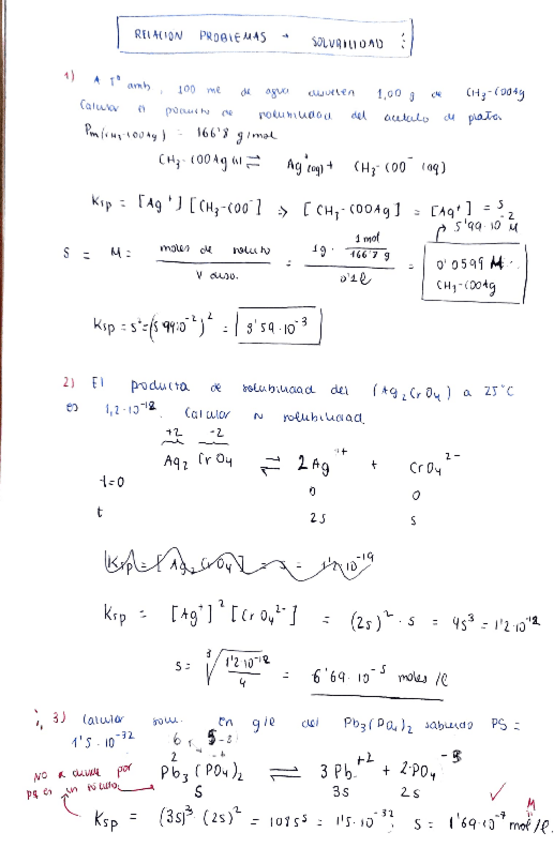 RELACION PROBLEMAS → SOLUBILIDAD :
1) A Tª amb, 100 ml de agua disuelven 1,00 g de CH3-COOAg
Calcular el producto de solubilidad del acetato de plata
Pm(CH3-COOAg) = 166'8 g/mol
CH3-COOAg (s) ⇌ Ag+(aq) + CH3-COO- (aq)
Ksp = [Ag+][CH3-COO-] => [CH3-COOAg] = [Ag+] = s
5'99·10^-2 M
S = M = moles de soluto / V diso. = 1g · 1 mol / 166'8 g / 0'1 l = 0'0599 M
CH3-COOAg
Ksp = s² = (5'99·10^-2)² = 3'59·10^-3
2) El producto de solubilidad del (Ag2CrO4) a 25°C
es 1,2·10^-12. Calcular su solubilidad.
+2 -2
Ag2 CrO4 ⇌ 2Ag+ + CrO4 2-
t=0 0 0
t 2s s
Ksp = [Ag+]² [CrO4 2-] = (2s)² · s = 4s³ = 1'2·10^-12
s = ³√(1'2·10^-12 / 4) = 6'69·10^-5 moles /l
3) Calcular solu. en g/l del Pb3(PO4)2 sabiendo PS =
1'5·10^-32
Pb3 (PO4)2 ⇌ 3 Pb +2 + 2·PO4 -3
S 3s 2s
NO se divide por
Ksp = (3s)³ (2s)² = 108s⁵ = 1'5·10^-32 ; s = 1'69·10^-7 mol/l.
M